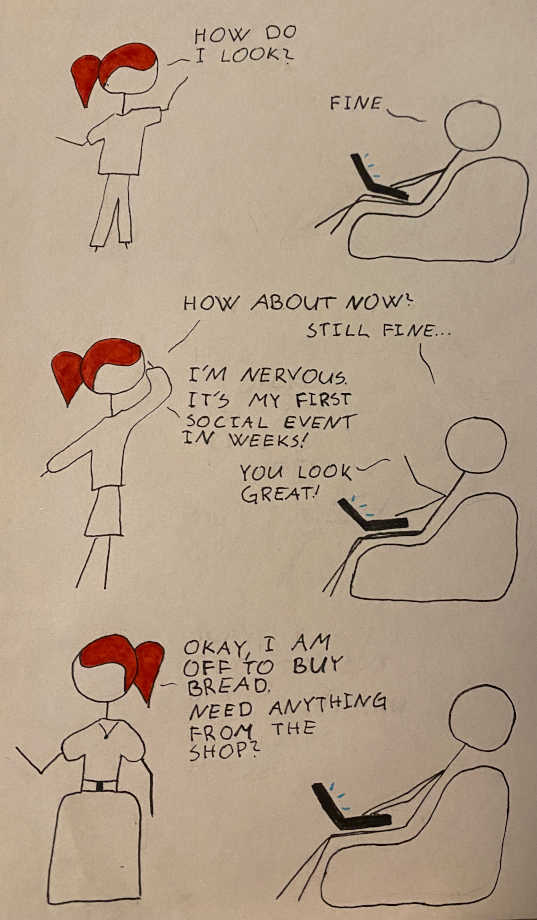 HOW DO
I LOOK?
FINE
HOW ABOUT NOW?
STILL FINE...
I'M NERVOUS.
IT'S MY FIRST
SOCIAL EVENT
IN WEEKS!
YOU LOOK
GREAT!
OKAY, I AM
OFF TO BUY
BREAD.
NEED ANYTHING
FROM THE
SHOP?